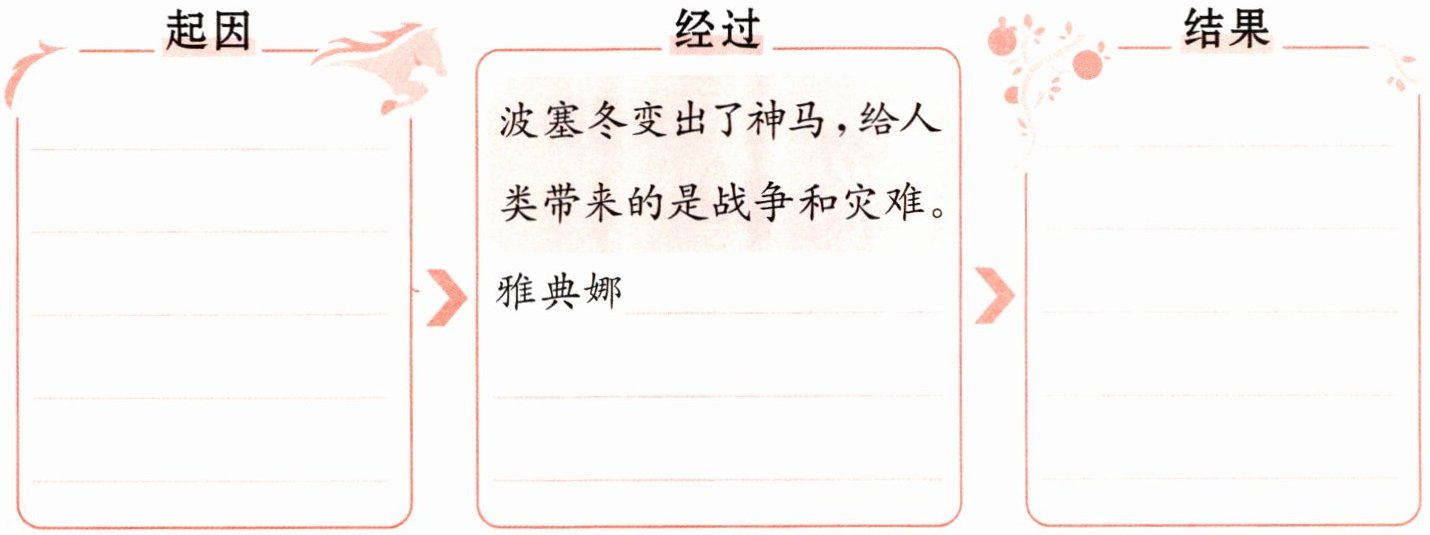 起因
经过
波塞冬变出了神马，给人
类带来的是战争和灾难。
雅典娜
结果